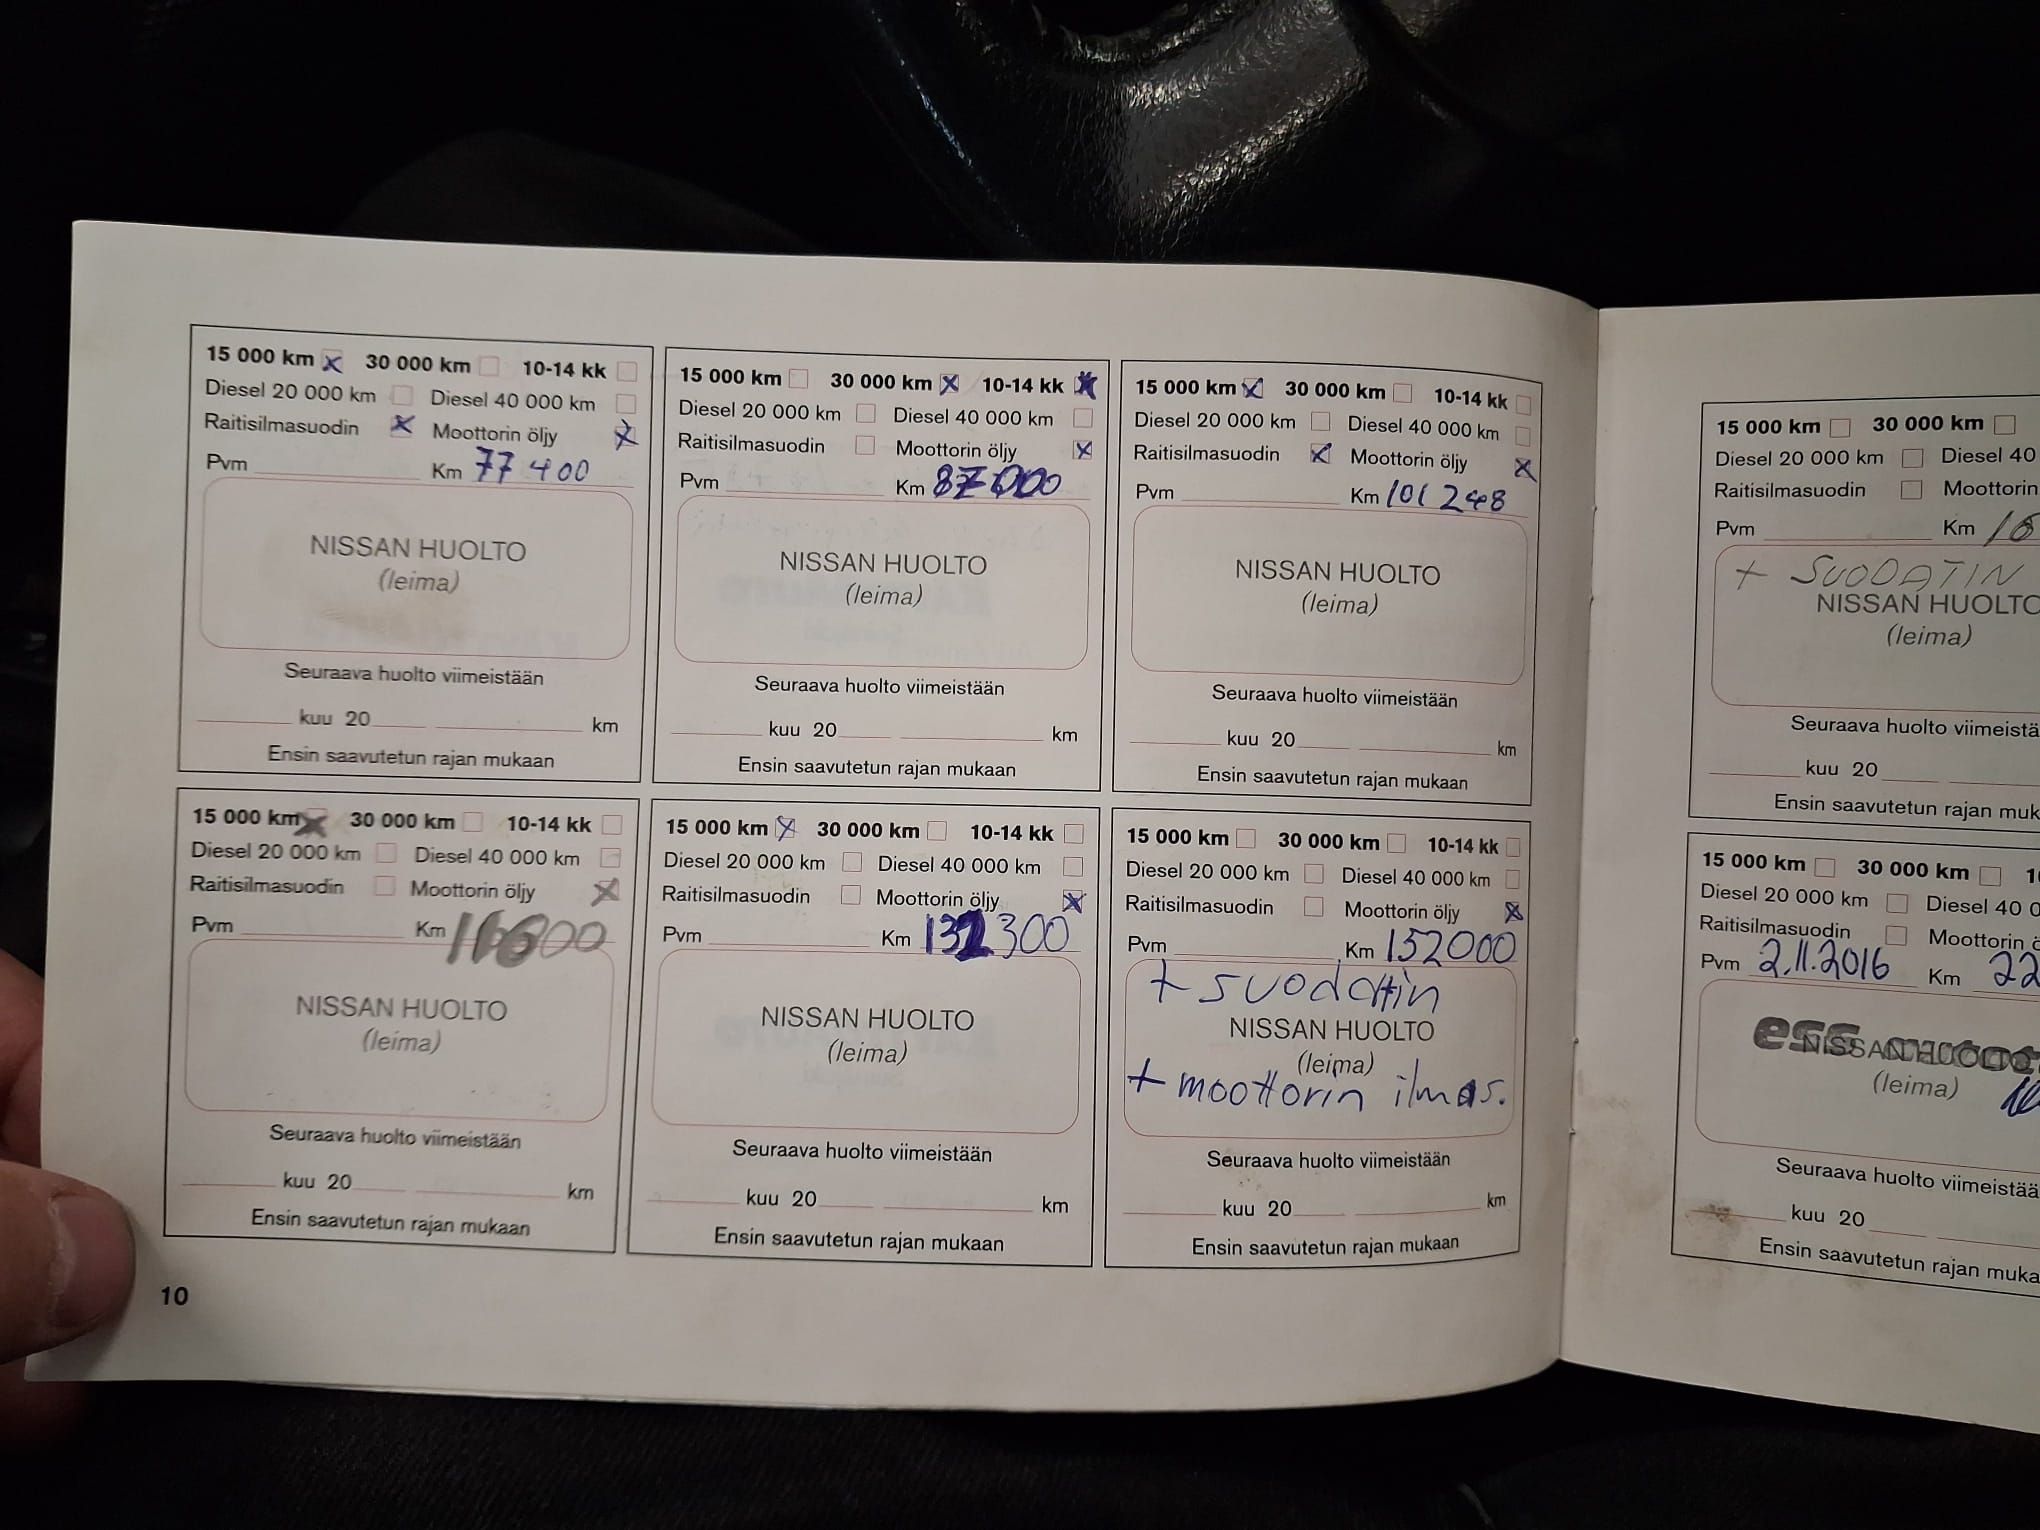 15 000 km x 30 000 km 10-14 kk
Diesel 20 000 km Diesel 40 000 km
Raitisilmasuodin x Moottorin öljy x
Pvm Km 77 400
NISSAN HUOLTO
(leima)
Seuraava huolto viimeistään
kuu 20 km
Ensin saavutetun rajan mukaan
15 000 km 30 000 km x 10-14 kk x
Diesel 20 000 km Diesel 40 000 km
Raitisilmasuodin Moottorin öljy x
Pvm Km 87000
NISSAN HUOLTO
(leima)
Seuraava huolto viimeistään
kuu 20 km
Ensin saavutetun rajan mukaan
15 000 km x 30 000 km 10-14 kk
Diesel 20 000 km Diesel 40 000 km
Raitisilmasuodin x Moottorin öljy x
Pvm Km 101 248
NISSAN HUOLTO
(leima)
Seuraava huolto viimeistään
kuu 20 km
Ensin saavutetun rajan mukaan
15 000 km x 30 000 km 10-14 kk
Diesel 20 000 km Diesel 40 000 km
Raitisilmasuodin Moottorin öljy x
Pvm Km
NISSAN HUOLTO
(leima)
Seuraava huolto viimeistään
kuu 20 km
Ensin saavutetun rajan mukaan
15 000 km x 30 000 km 10-14 kk
Diesel 20 000 km Diesel 40 000 km
Raitisilmasuodin Moottorin öljy x
Pvm Km 132300
NISSAN HUOLTO
(leima)
Seuraava huolto viimeistään
kuu 20 km
Ensin saavutetun rajan mukaan
15 000 km 30 000 km 10-14 kk
Diesel 20 000 km Diesel 40 000 km
Raitisilmasuodin Moottorin öljy x
Pvm Km 152000
+ suodatin
NISSAN HUOLTO
(leima)
+ moottorin ilmas.
Seuraava huolto viimeistään
kuu 20 km
Ensin saavutetun rajan mukaan
10
15 000 km 30 000 km
Diesel 20 000 km Diesel 40
Raitisilmasuodin Moottorin
Pvm Km
+ SUODATIN
NISSAN HUOLTO
(leima)
Seuraava huolto viimeistä
kuu 20
Ensin saavutetun rajan muk
15 000 km 30 000 km 1
Diesel 20 000 km Diesel 40 0
Raitisilmasuodin Moottorin ö
Pvm 2.11.2016 Km 22
ess autot
NISSAN HUOLTO
(leima)
Seuraava huolto viimeistä
kuu 20
Ensin saavutetun rajan muka